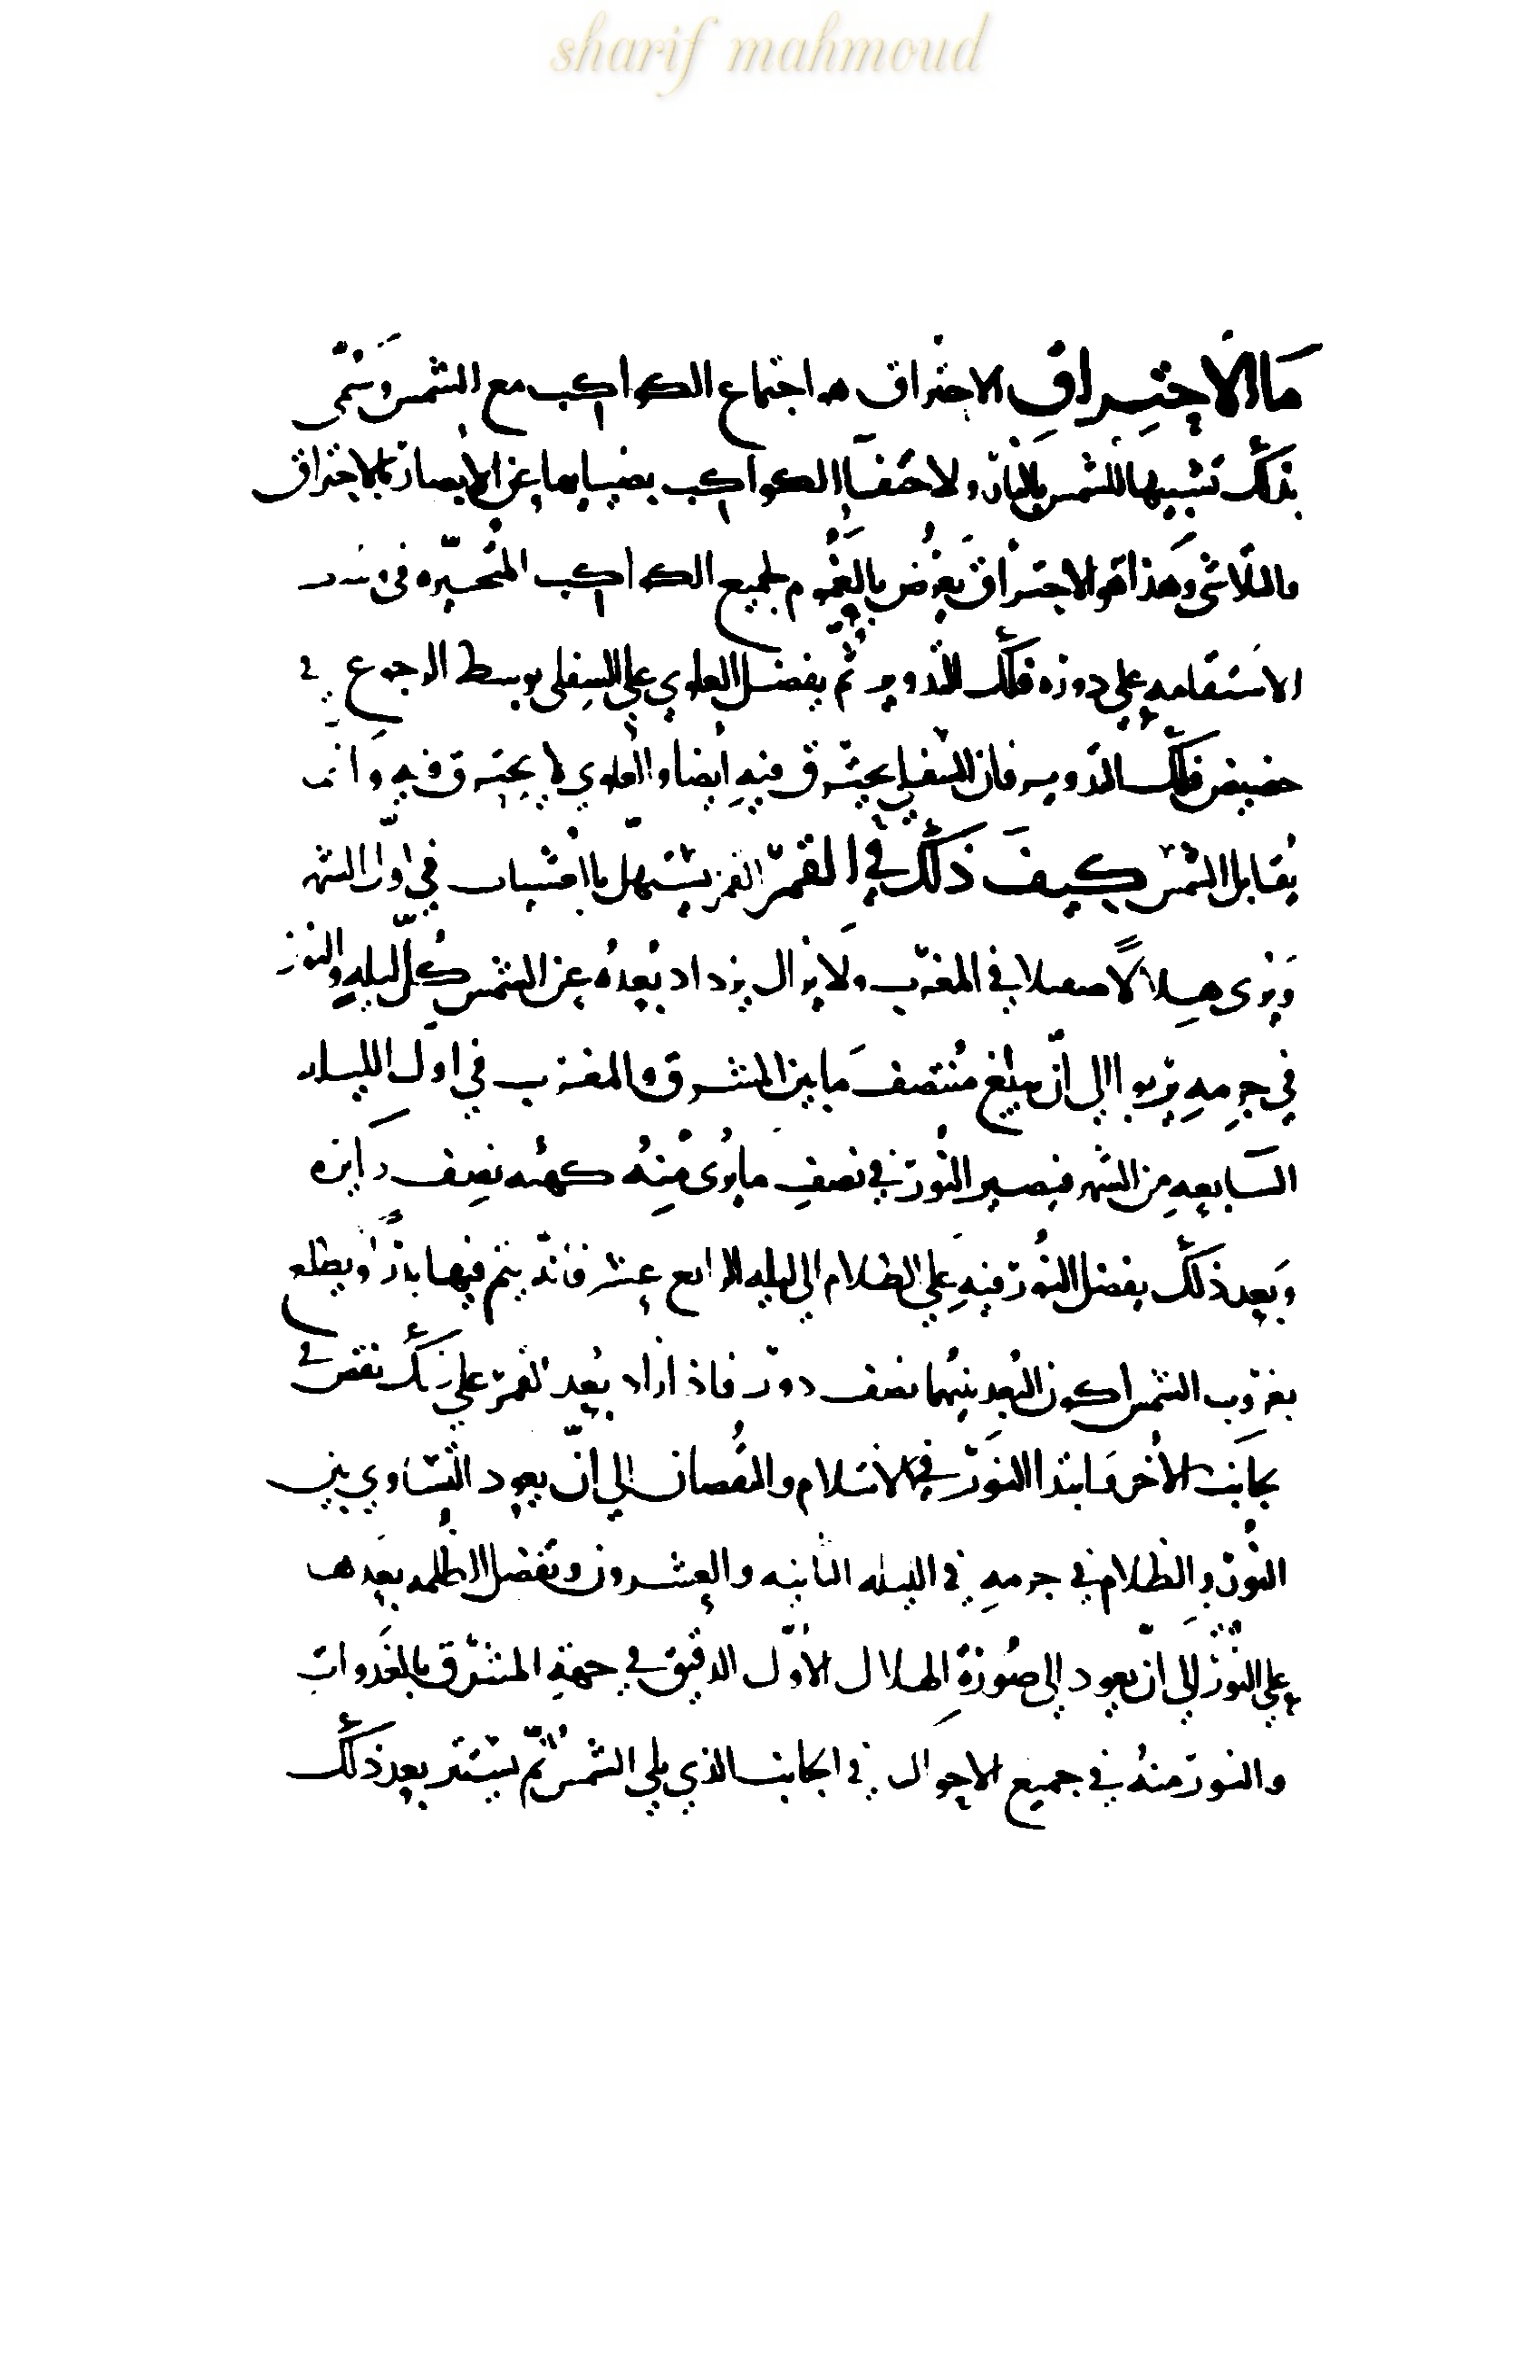 sharif mahmoud
ما الاحتراق الاحتراق هو اجتماع الكواكب مع الشمس وسمى
بذلك تشبيها للشمس بالنار ولاختفاء الكواكب بضيايها عن الابصار بالاحتراق
والتلاشى وهذا هو الاحتراق يعرض بالعموم لجميع الكواكب المتحيره فى
الاستقامه على دوره فلك التدوير ثم يفضل العلوي على السفلى بوسط الرجوع في
حضيض فلك التدوير فان السفلي يحترق فيه أيضا والعلوي لا يحترق فيه وانما
يقابل الشمس كيف ذلك في القمر القمر يستهل بالعشيات في اول الشهر
ويرى هلالا في المغرب ولا يزال يزداد بعده عن الشمس كل ليله والنور
في جرمه يربوا الى ان يبلغ منتصف ما بين المشرق والمغرب في اول الليله
السابعه من الشهر فيصير النور في نصف ما يرى منه كهئه نصف دايره
وبعد ذلك يفضل النور فيه على الظلام الى ليله الرابع عشر فانه يتم فيها بدرا ويطلع
بغروب الشمس لكون البعد بينهما نصف دور فاذا ازاد بعد القمر على ذلك نقص في
جانب الاخر وابتدا النور في الانسلام والنقصان الى ان يعود التساوي بين
النور والظلام في جرمه في الليله الثانيه والعشرون وتفضل الظلمه بعدها
على النور الى ان يعود الى صورة الهلال الاول الدقيق في جهة المشرق بالغدوات
والنور منه في جميع الاحوال في الجانب الذي يلي الشمس ثم يستتر بعد ذلك